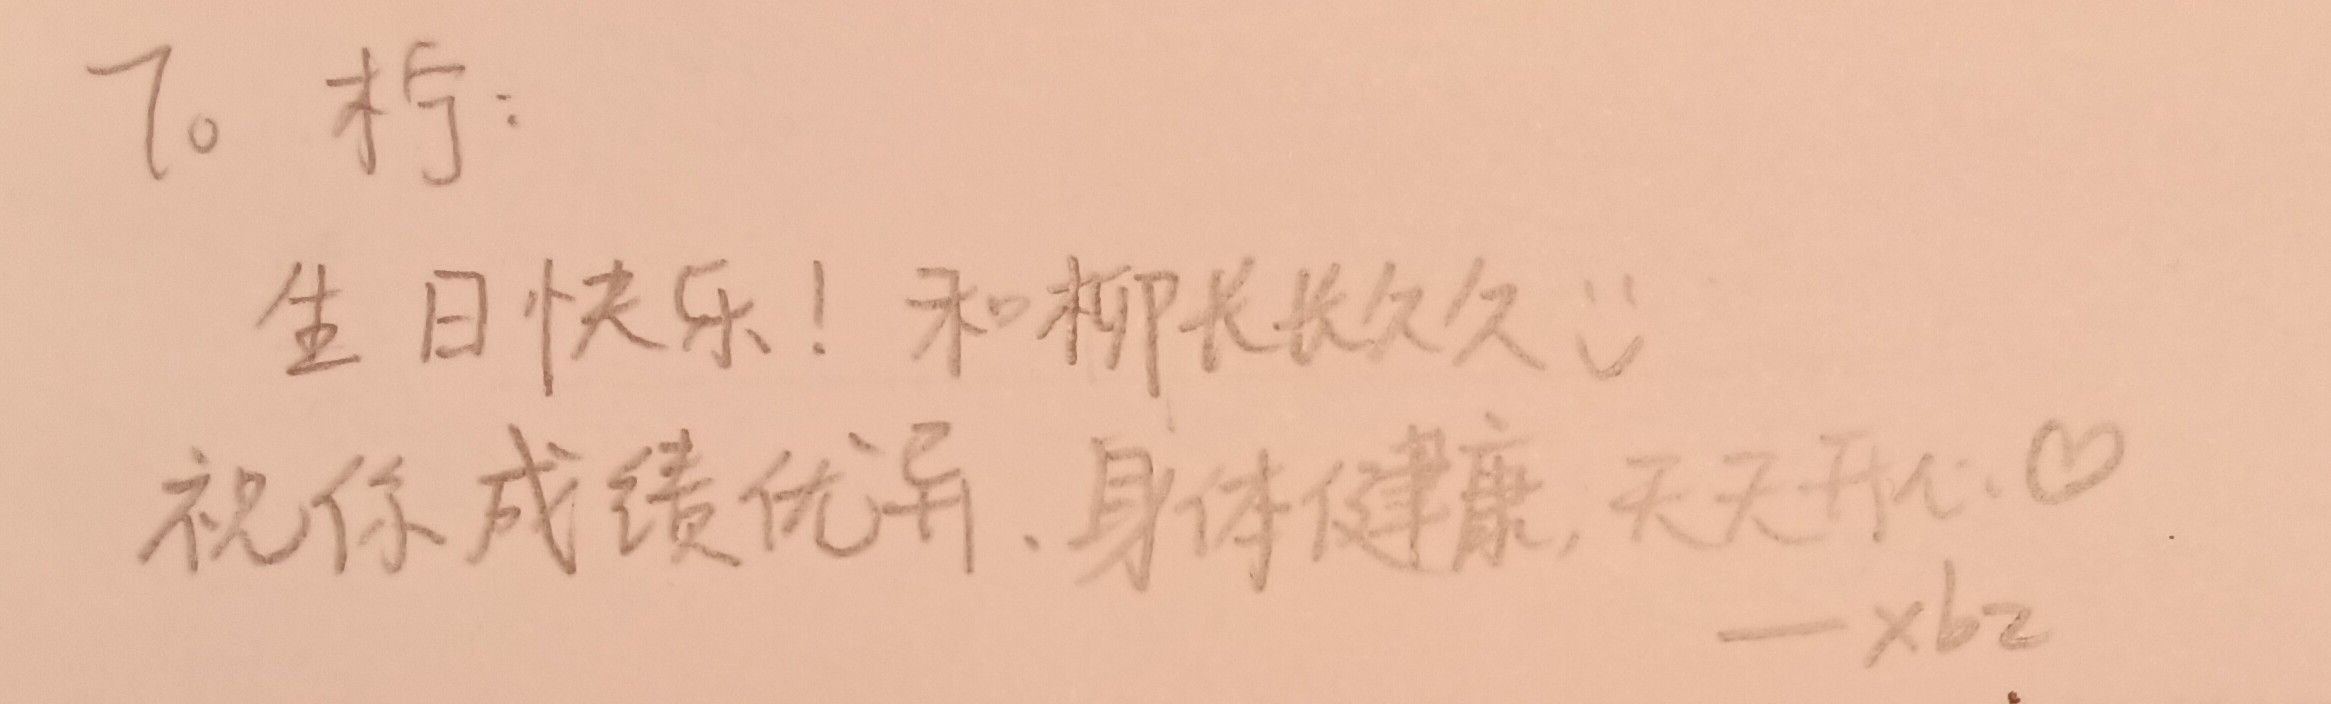 To 柠:
生日快乐！和柳长长久久
祝你成绩优异、身体健康，天天开心.
—xbz